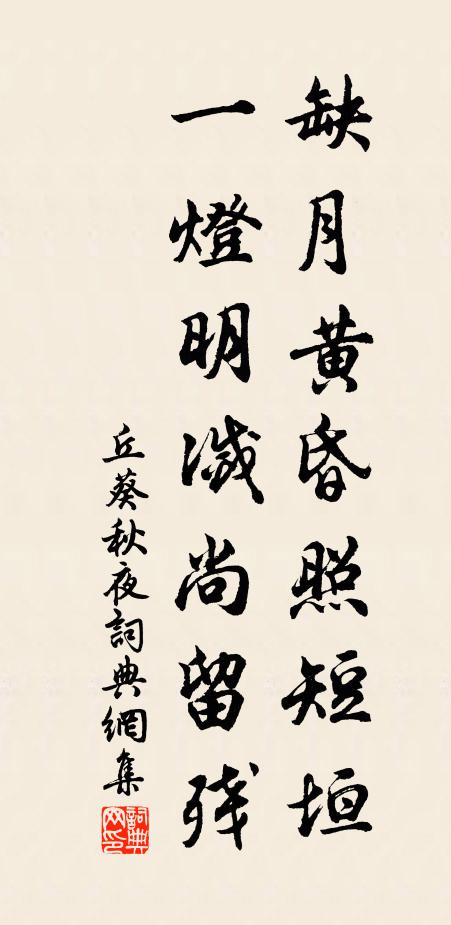 缺月黄昏照短垣
一燈明滅尚留残
丘葵秋夜詞典網集
詞典網印